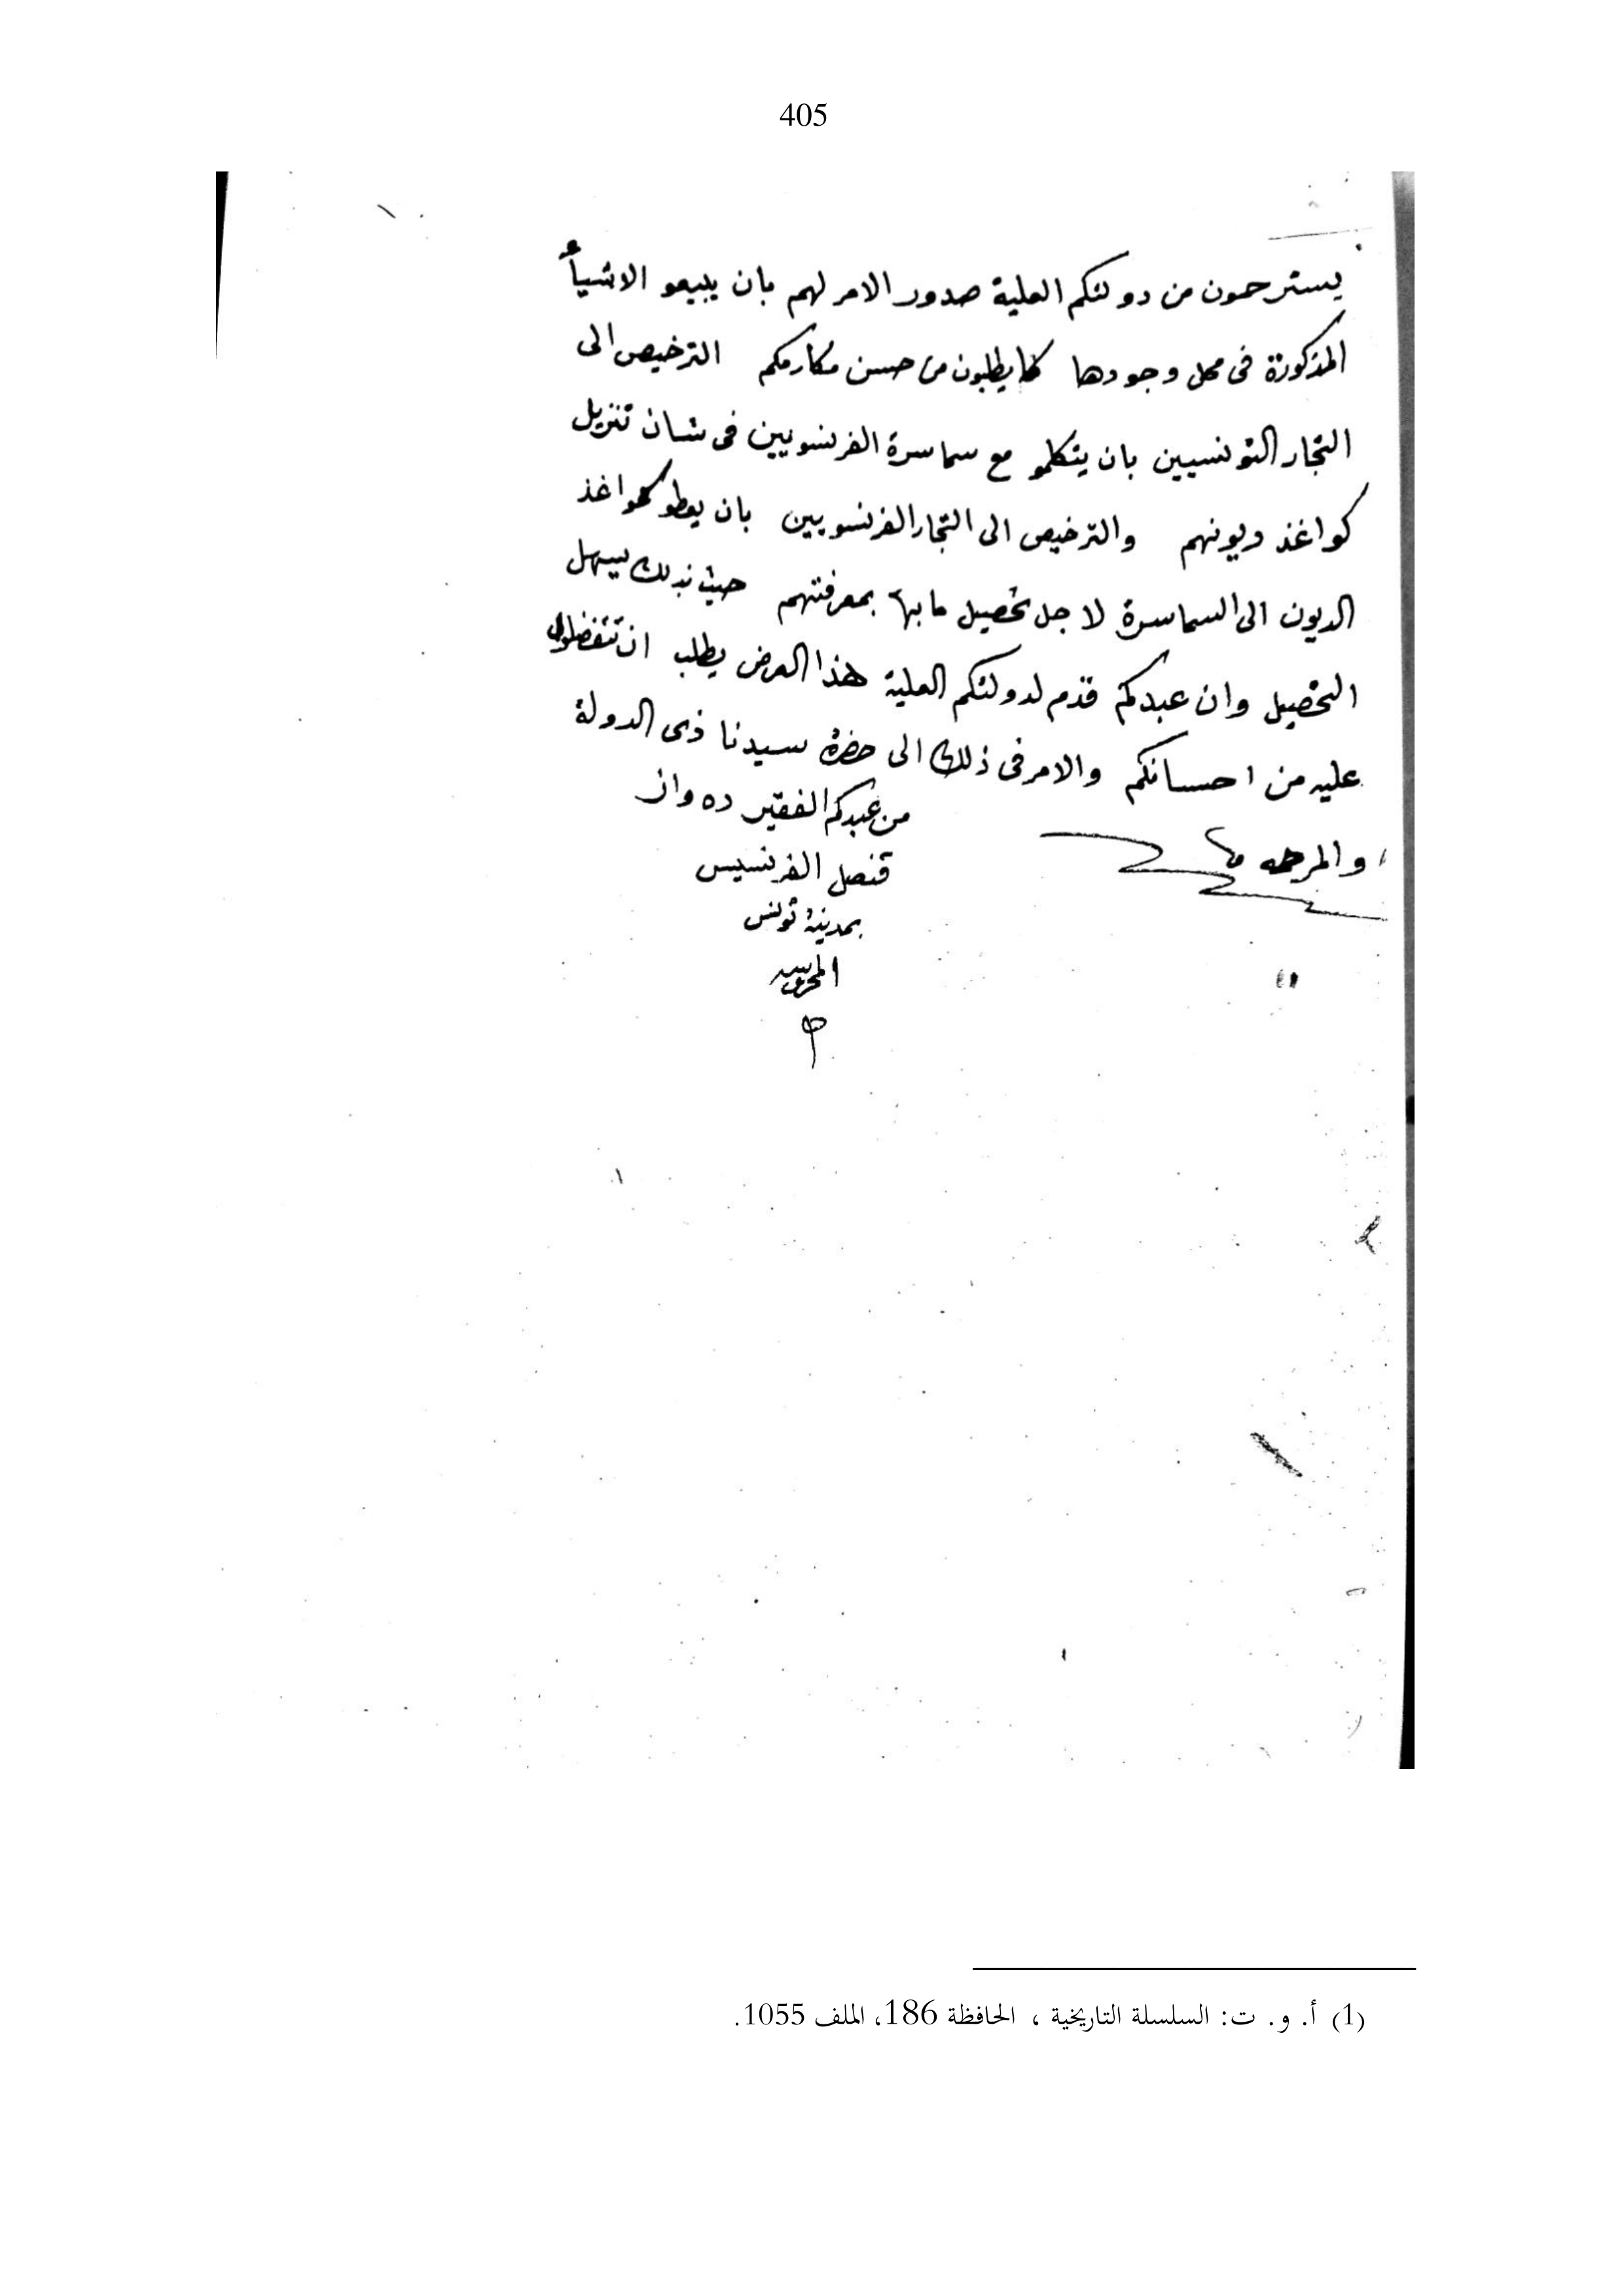 405
يسترحمون من دولتكم العلية صدور الامر لهم بان يبيعو الاشياء
المذكورة فى محل وجودها كما يطلبون من حسن مكارمكم الترخيص الى
التجار التونسيين بان يتكلمو مع سماسرة الفرنسويين فى شان تنزيل
كواغذ ديونهم والترخيص الى التجار الفرنسويين بان يعطو كواغذ
الديون الى السماسرة لاجل تحصيل ما بها بمعرفتهم حيث بذلك يسهل
التحصيل وان عبدكم قدم لدولتكم العلية هذا العرض يطلب ان تتفضلوا
عليه من احسانكم والامر فى ذلك الى حضرة سيدنا ذى الدولة
والمرحمه
من عبدكم الفقير ده واز
قنصل الفرنسيس
بمدينة تونس
المحروسه
(1) أ. و. ت: السلسلة التاريخية ، الحافظة 186، الملف 1055.